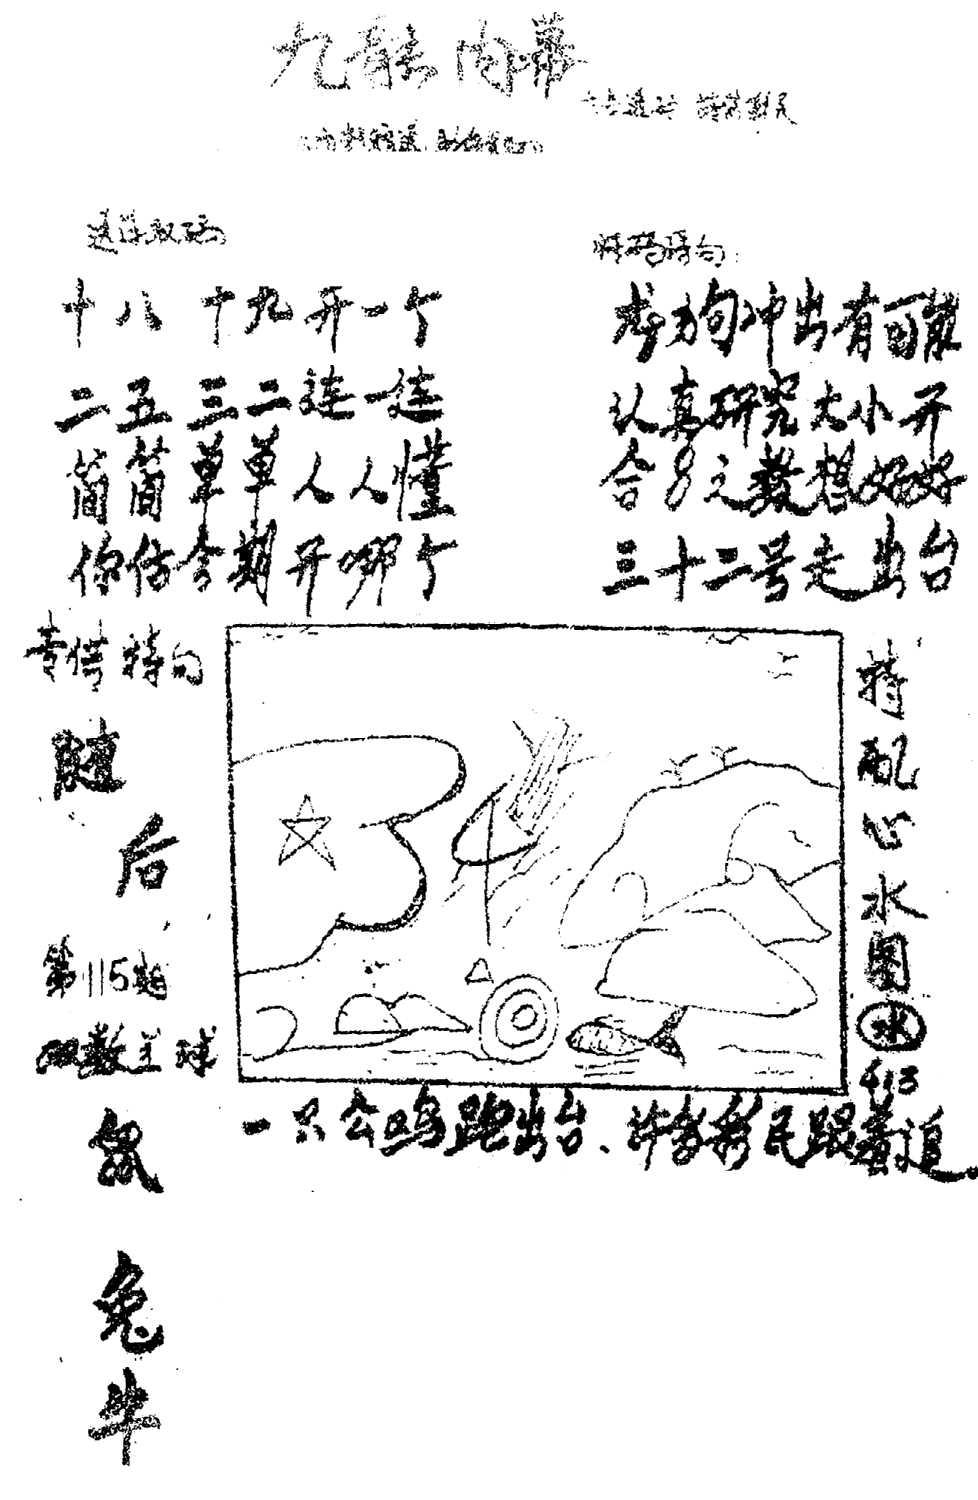 九龍内幕
十八 十九开一个
二五 三二连一连
简简单单人人懂
你估今期开哪个
特码诗句
狗冲出有可能
认真研究大小开
合多之数想好好
三十二号走出台
特句
随
后
第115期
双数主球
鼠
兔
牛
特
配
心
水
图
水
413
一只公鸡跑出台、许多彩民跟着追。